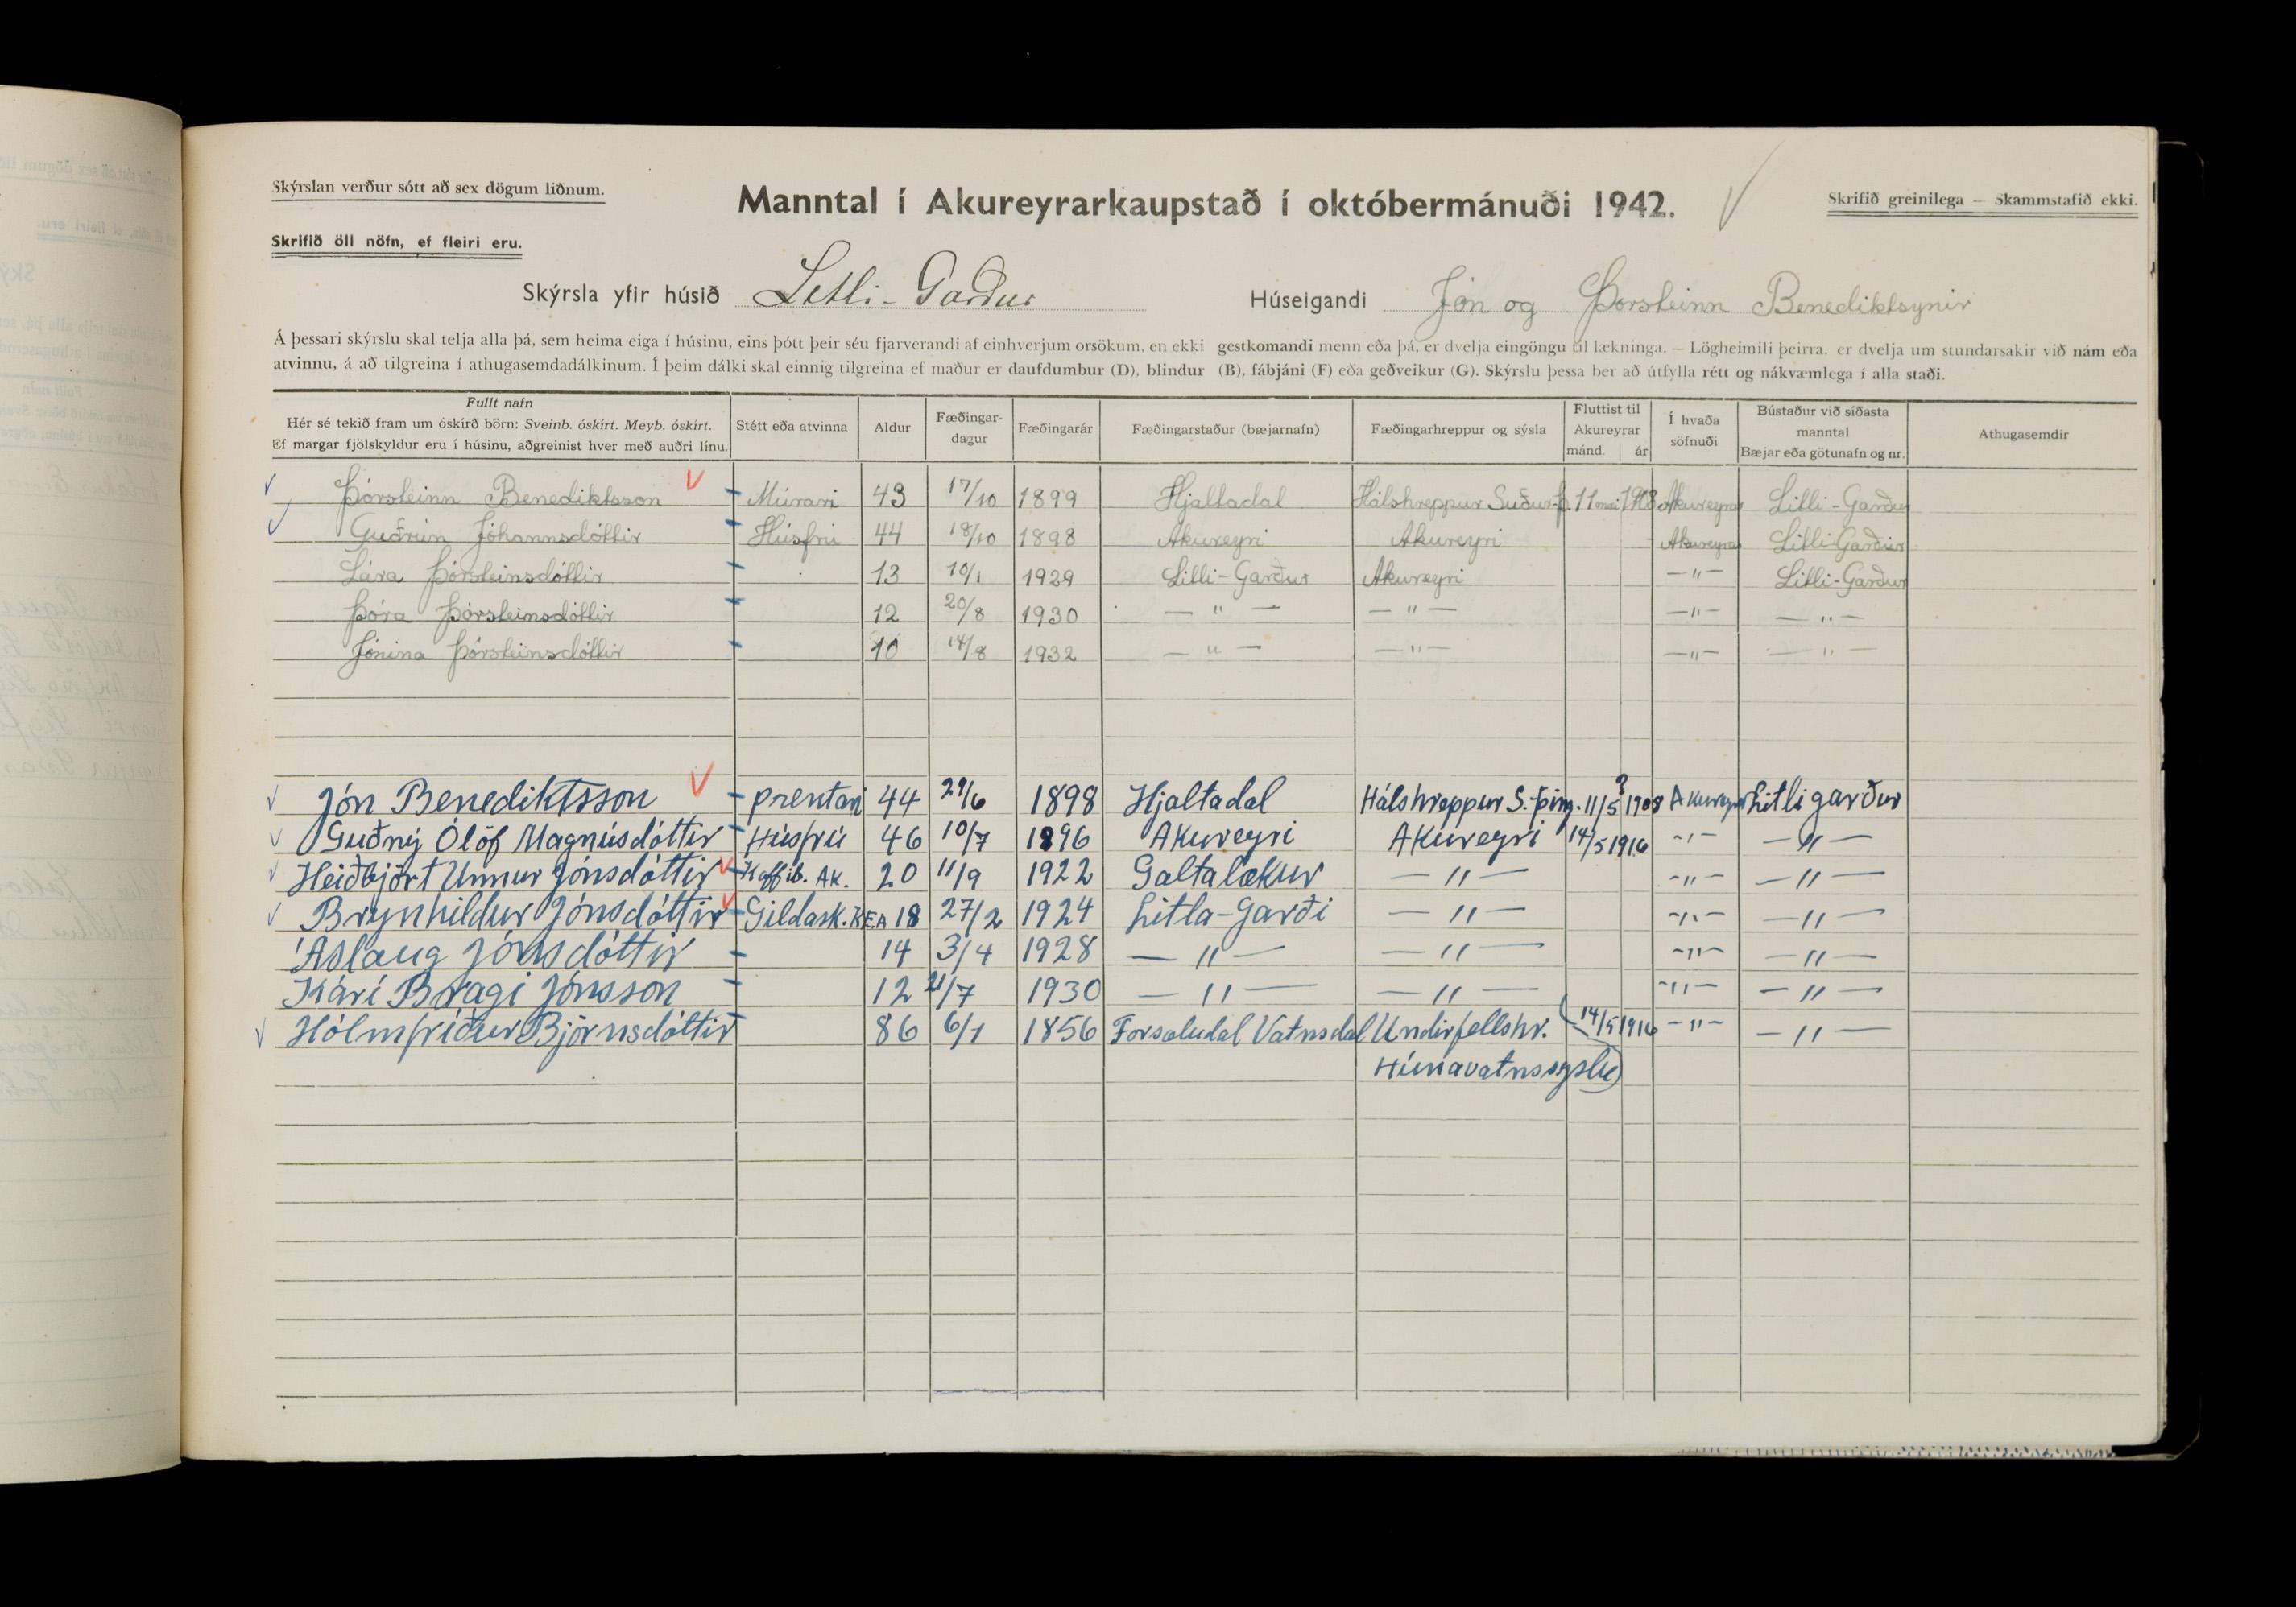 Skýrslan verður sótt að sex dögum liðnum.
Manntal í Akureyrarkaupstað í októbermánuði 1942.
Skrifið greinilega — Skammstafið ekki.
Skrifið öll nöfn, ef fleiri eru.
Skýrsla yfir húsið Litli-Garður Húseigandi Jón og Þorsteinn Benediktsynir
Á þessari skýrslu skal telja alla þá, sem heima eiga í húsinu, eins þótt þeir séu fjarverandi af einhverjum orsökum, en ekki gestkomandi menn eða þá, er dvelja eingöngu til lækninga. — Lögheimili þeirra. er dvelja um stundarsakir við nám eða
atvinnu, á að tilgreina í athugasemdadálkinum. Í þeim dálki skal einnig tilgreina ef maður er daufdumbur (D), blindur (B), fábjáni (F) eða geðveikur (G). Skýrslu þessa ber að útfylla rétt og nákvæmlega í alla staði.
Fullt nafn
Hér sé tekið fram um óskírð börn: Sveinb. óskírt. Meyb. óskírt.
Ef margar fjölskyldur eru í húsinu, aðgreinist hver með auðri línu.
Stétt eða atvinna
Aldur
Fæðingar-
dagur
Fæðingarár
Fæðingarstaður (bæjarnafn)
Fæðingarhreppur og sýsla
Fluttist til
Akureyrar
mánd. ár
Í hvaða
söfnuði
Bústaður við síðasta
manntal
Bæjar eða götunafn og nr.
Athugasemdir
Þórsteinn Benediktsson Múrari 43 17/10 1899 Hjaltadal Hálshreppur Suður-Þ. 11 mai 1908 Akureyrar Litli-Garður
Guðrún Jóhannsdóttir Húsfrú 44 18/10 1898 Akureyri Akureyri Akureyrar Litli-Garður
Lára Þórsteinsdóttir 13 10/1 1929 Litli-Garður Akureyri —"— Litli-Garður
Þóra Þórsteinsdóttir 12 20/8 1930 —"— —"— —"— —"—
Jónína Þórsteinsdóttir 10 14/8 1932 —"— —"— —"— —"—
Jón Benediktsson prentari 44 29/6 1898 Hjaltadal Hálshreppur S.-Þing. 11/5 ? 1908 Akureyrar Litligarður
Guðný Ólöf Magnúsdóttir Húsfrú 46 10/7 1896 Akureyri Akureyri 14/5 1916 —"— —"—
Heiðbjört Unnur Jónsdóttir Kaffib. Ak. 20 11/9 1922 Galtalækur —"— —"— —"—
Brynhildur Jónsdóttir Gildask. KEA 18 27/2 1924 Litla-Garði —"— —"— —"—
Áslaug Jónsdóttir 14 3/4 1928 —"— —"— —"— —"—
Kári Bragi Jónsson 12 21/7 1930 —"— —"— —"— —"—
Hólmfríður Björnsdóttir 86 6/1 1856 Forsæludal Vatnsdal Undirfellshr. 14/5 1916 —"— —"—
Húnavatnssýslu)